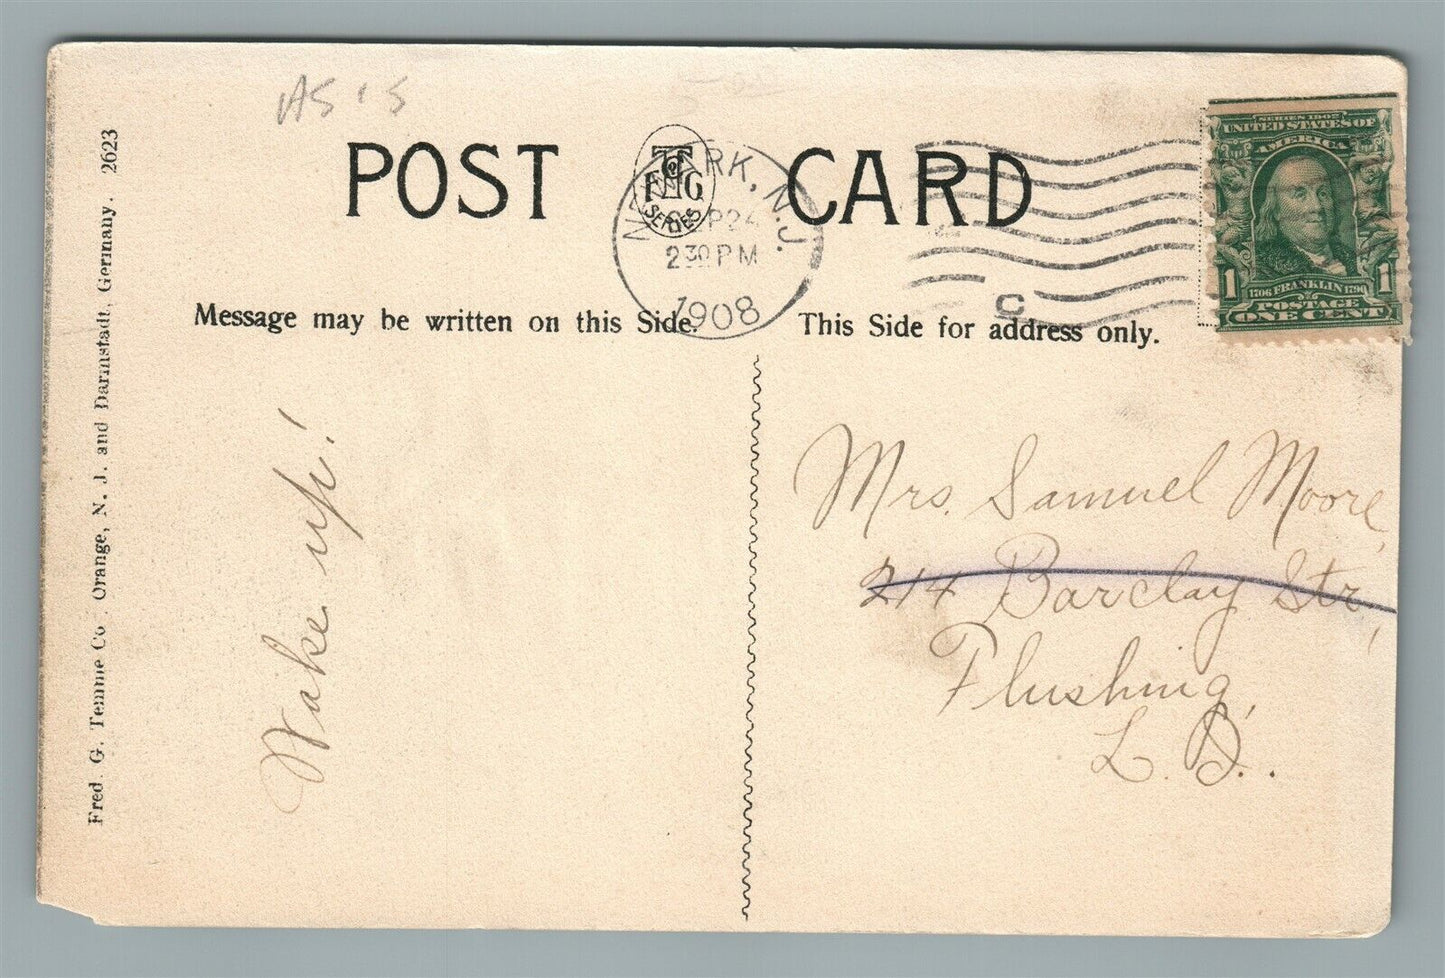 AS IS
POST CARD
F T G
Co
SERIES
NEWARK, N.J.
SEP 24
2 30 PM
1908
C
SERIES 1902
UNITED STATES OF
AMERICA
1 1
1706 FRANKLIN 1790
POSTAGE
ONE CENT
Message may be written on this Side.
This Side for address only.
Fred. G. Temme Co., Orange, N. J. and Darmstadt, Germany. 2623
Wake up!
Mrs. Samuel Moore,
214 Barclay Str,
Flushing,
L. I.